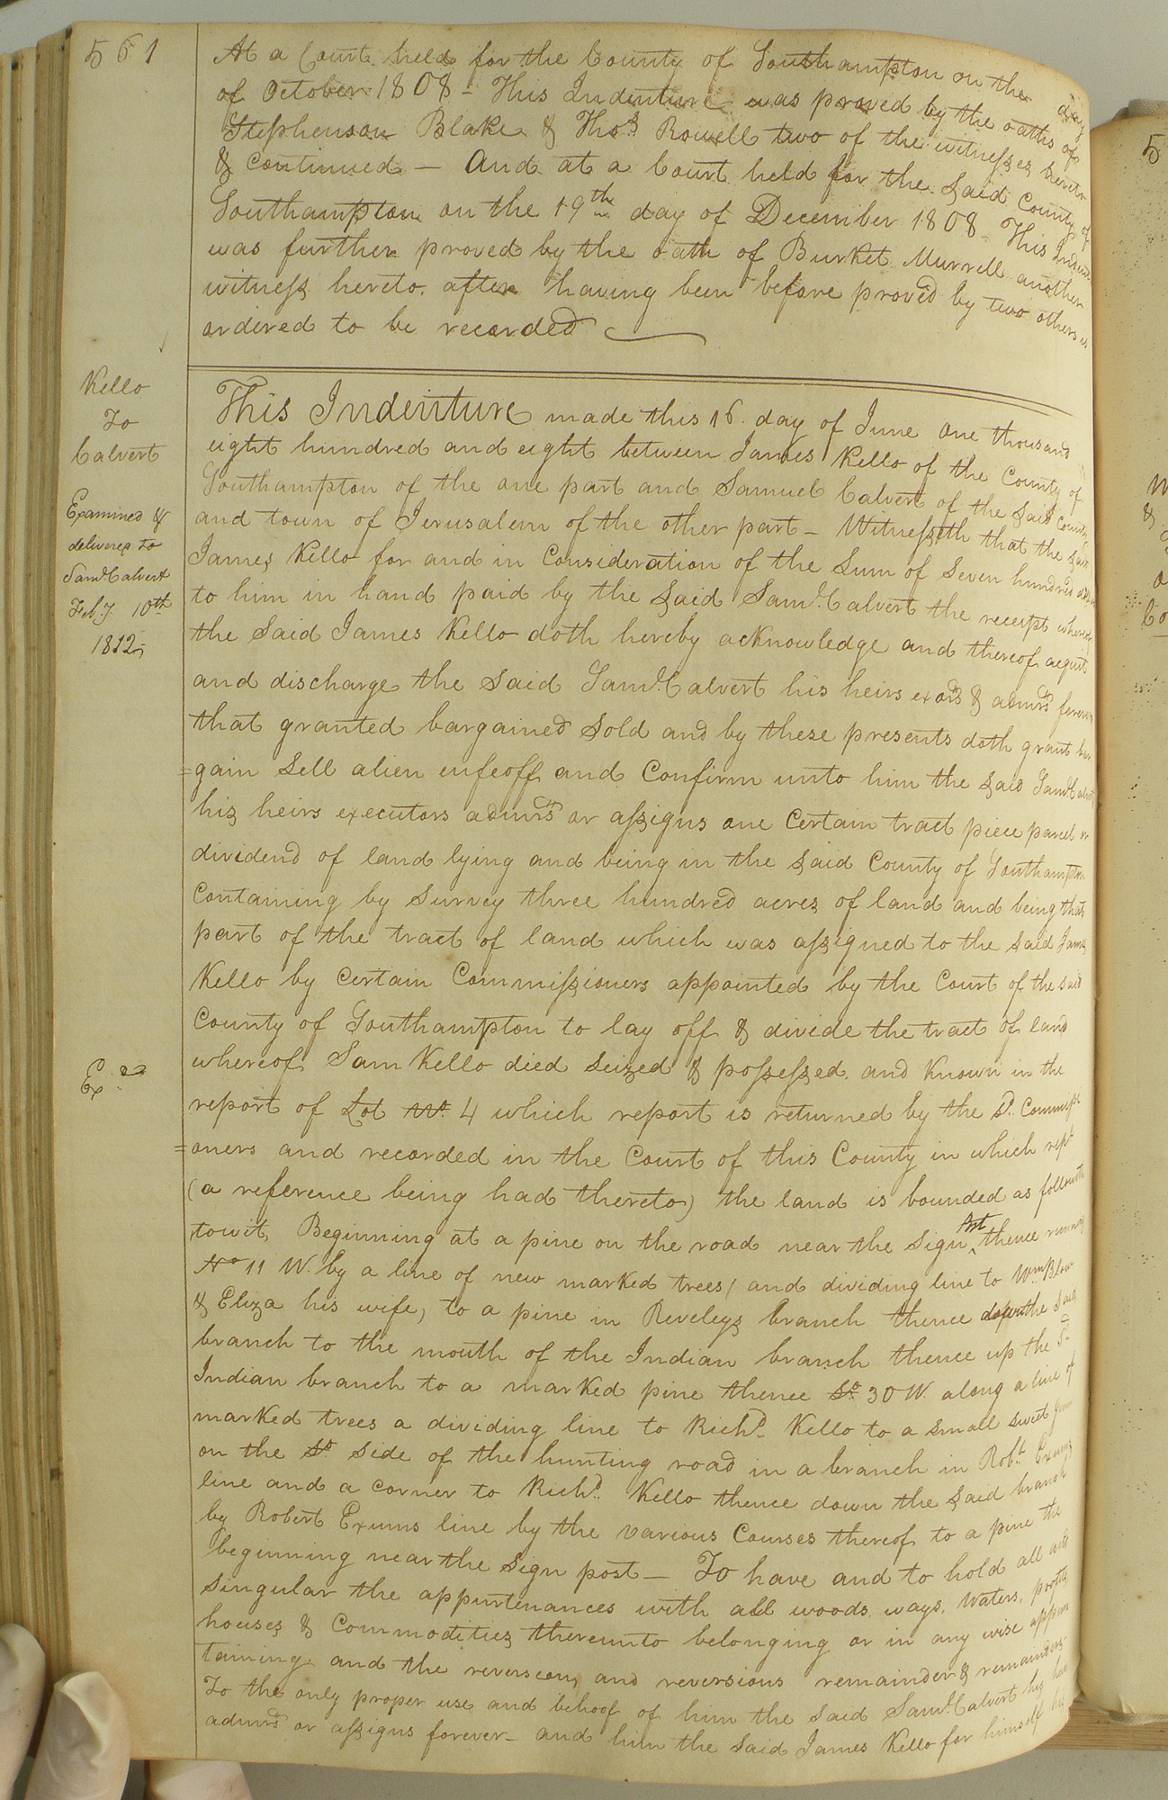 561
At a Court held for the County of Southampton on the day
of October 1808 – This Indenture was proved by the oaths of
Stephenson Blake & Thos. Rowell two of the witnesses hereto
& continued — And at a Court held for the said County of
Southampton on the 19th day of December 1808 This Indenture
was further proved by the oath of Burket Murrell another
witness hereto after having been before proved by two others is
ordered to be recorded
Kello
To
Calvert
Examined &
delivered to
Saml. Calvert
Feby. 10th
1812
This Indenture made this 16 day of June one thousand
eight hundred and eight between James Kello of the County of
Southampton of the one part and Samuel Calvert of the said County
and town of Jerusalem of the other part – Witnesseth that the said
James Kello for and in Consideration of the Sum of Seven hundred
to him in hand paid by the said Saml. Calvert the receipt whereof
the said James Kello doth hereby acknowledge and thereof acquit
and discharge the said Saml. Calvert his heirs exors & admrs forever
that granted bargained sold and by these presents doth grant bar
=gain sell alien enfeoff and Confirm unto him the said Saml. Calvert
his heirs executors admrs or assigns one Certain tract piece parcel or
dividend of land lying and being in the said County of Southampton
Containing by survey three hundred acres of land and being that
part of the tract of land which was assigned to the said James
Kello by Certain Commissioners appointed by the Court of the said
County of Southampton to lay off & divide the tract of land
whereof Sam Kello died seized & possessed and known in the
Exd
report of Lot No. 4 which report is returned by the sd. Commissi
=oners and recorded in the Court of this County in which rept
(a reference being had thereto) the land is bounded as followeth
towit, Beginning at a pine on the road near the Sign Post thence running
No 11 W. by a line of new marked trees (and dividing line to Wm Blow
& Eliza his wife) to a pine in Reveleys branch thence down the said
branch to the mouth of the Indian branch thence up the sd.
Indian branch to a marked pine thence So 30 W. along a line of
marked trees a dividing line to Richd. Kello to a small sweet gum
on the So side of the hunting road in a branch in Robt. Exums
line and a corner to Richd. Kello thence down the said branch
by Robert Exums line by the various Courses thereof to a pine the
beginning near the sign post — To have and to hold all and
singular the appurtenances with all woods, ways, waters, profits
houses & Commodities thereunto belonging or in any wise apper
taining and the reversion and reversions remainder & remainders
To the only proper use and behoof of him the said Saml. Calvert his heirs
admrs or assigns forever – and him the said James Kello for himself his